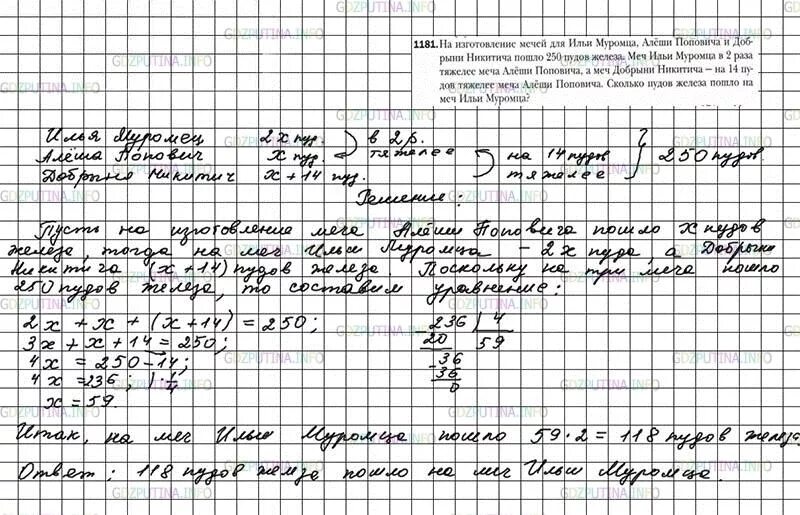 GDZPUTINA.INFO
1181. На изготовление мечей для Ильи Муромца, Алёши Поповича и Доб-
рыни Никитича пошло 250 пудов железа. Меч Ильи Муромца в 2 раза
тяжелее меча Алёши Поповича, а меч Добрыни Никитича – на 14 пу-
дов тяжелее меча Алёши Поповича. Сколько пудов железа пошло на
меч Ильи Муромца?
Илья Муромец 2x пуд. в 2 р.
Алёша Попович x пуд. тяжелее на 14 пудов 250 пудов.
Добрыня Никитич x + 14 пуд. тяжелее
Решение:
Пусть на изготовление меча Алёши Поповича пошло x пудов
железа, тогда на меч Ильи Муромца – 2x пуда, а Добрыни
Никитича (x+14) пудов железа. Поскольку на три меча пошло
250 пудов железа, то составим уравнение:
2x + x + (x+14) = 250;
3x + x + 14 = 250;
4x = 250-14;
4x = 236; | · 1/4
x = 59.
236 | 4
20 59
36
36
0
Итак, на меч Ильи Муромца пошло 59·2 = 118 пудов железа.
Ответ: 118 пудов железа пошло на меч Ильи Муромца.